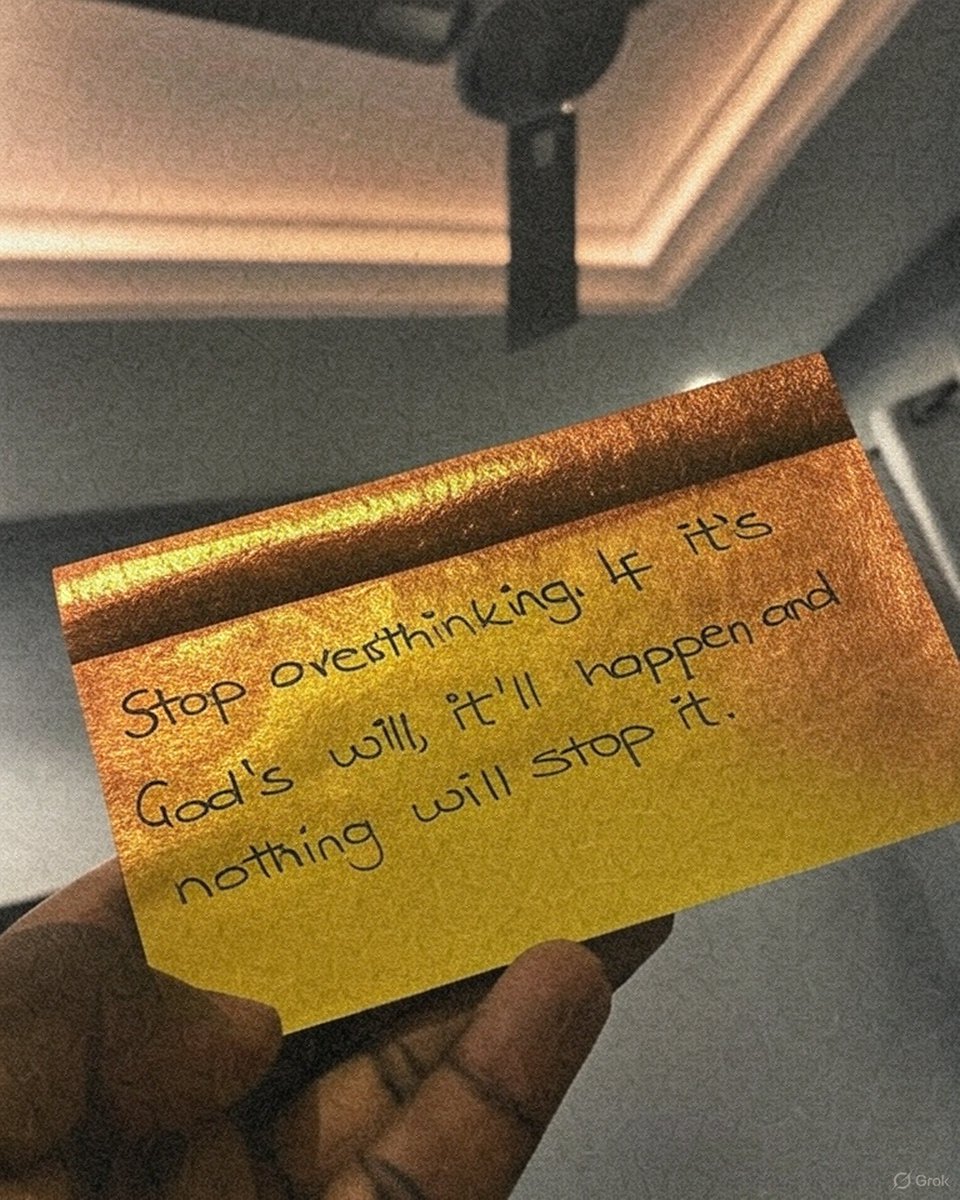 Stop overthinking. If it's
God's will, it'll happen and
nothing will stop it.
Grok